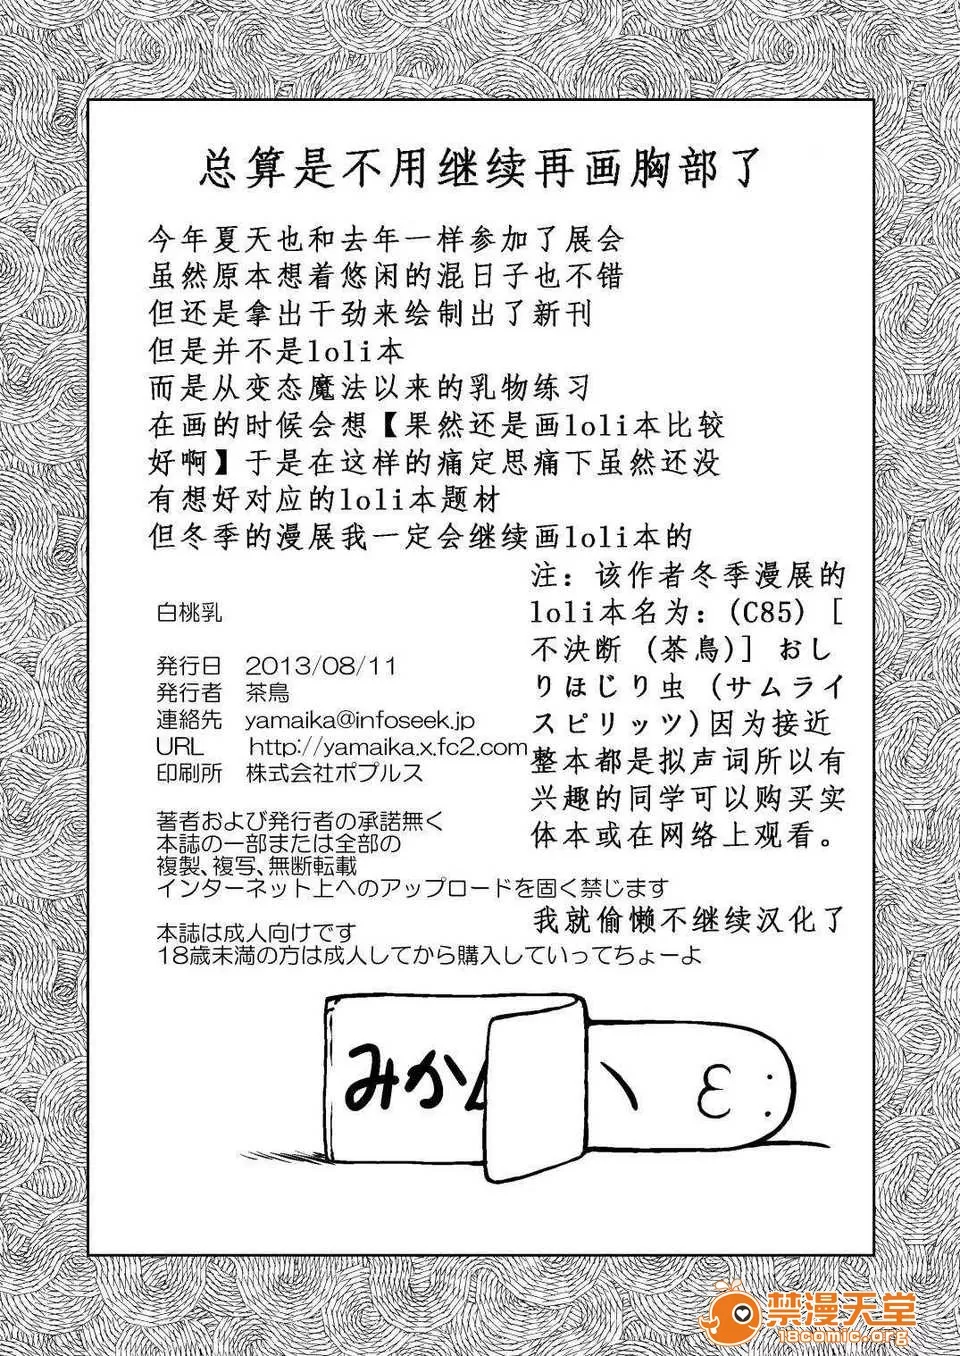 总算是不用继续再画胸部了
今年夏天也和去年一样参加了展会
虽然原本想着悠闲的混日子也不错
但还是拿出干劲来绘制出了新刊
但是并不是loli本
而是从变态魔法以来的乳物练习
在画的时候会想【果然还是画loli本比较
好啊】于是在这样的痛定思痛下虽然还没
有想好对应的loli本题材
但冬季的漫展我一定会继续画loli本的
注：该作者冬季漫展的
loli本名为：(C85) [
不決断 (茶鳥)] おし
りほじり虫 (サムライ
スピリッツ)因为接近
整本都是拟声词所以有
兴趣的同学可以购买实
体本或在网络上观看。
我就偷懒不继续汉化了
白桃乳
発行日 2013/08/11
発行者 茶鳥
連絡先 yamaika@infoseek.jp
URL http://yamaika.x.fc2.com
印刷所 株式会社ポプルス
著者および発行者の承諾無く
本誌の一部または全部の
複製、複写、無断転載
インターネット上へのアップロードを固く禁じます
本誌は成人向けです
18歳未満の方は成人してから購入していってちょーよ
みか
禁漫天堂
18comic.org